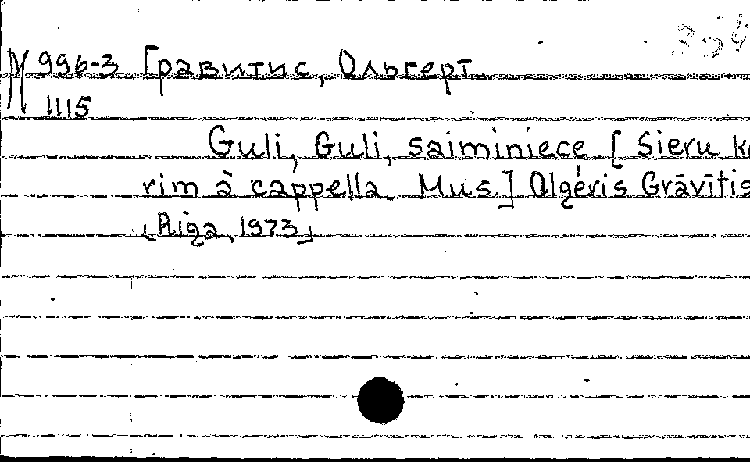 М 996-3 Гравитис, Ольгерт
1115
Guli, Guli, saiminiece [Sieru ko
rim à cappella. Mus.] Olgeris Grāvītis
[Riga, 1973]